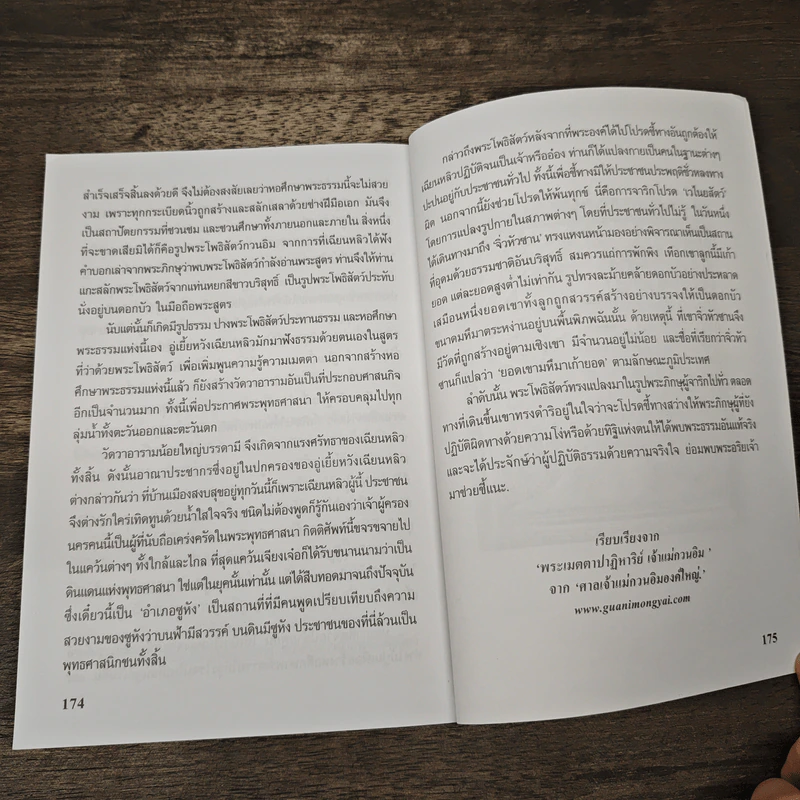 สำเร็จเสร็จสิ้นลงด้วยดี จึงไม่ต้องสงสัยเลยว่าหอศึกษาพระธรรมนี้จะไม่สวย
งาม เพราะทุกกระเบียดนิ้วถูกสร้างและสลักเสลาด้วยช่างฝีมือเอก มันจึง
เป็นสถาปัตยกรรมที่ชวนชม และชวนศึกษาทั้งภายนอกและภายใน สิ่งหนึ่ง
ที่จะขาดเสียมิได้ก็คือรูปพระโพธิสัตว์กวนอิม จากการที่เฉียนหลิวได้ฟัง
คำบอกเล่าจากพระภิกษุว่าพบพระโพธิสัตว์กำลังอ่านพระสูตร ท่านจึงให้ท่าน
แกะสลักพระโพธิสัตว์จากแท่นหยกสีขาวบริสุทธิ์ เป็นรูปพระโพธิสัตว์ประทับ
นั่งอยู่บนดอกบัว ในมือถือพระสูตร
นับแต่นั้นก็เกิดมีรูปธรรม ปางพระโพธิสัตว์ประทานธรรม และหอศึกษา
พระธรรมแห่งนี้เอง อู่เยี้ยหวังเฉียนหลิวมักมาฟังธรรมด้วยตนเองในสูตร
ที่ว่าด้วยพระโพธิสัตว์ เพื่อเพิ่มพูนความรู้ความเมตตา นอกจากสร้างหอ
ศึกษาพระธรรมแห่งนี้แล้ว ก็ยังสร้างวัดวาอารามอันเป็นที่ประกอบศาสนกิจ
อีกเป็นจำนวนมาก ทั้งนี้เพื่อประกาศพระพุทธศาสนา ให้ครอบคลุมไปทุก
ลุ่มน้ำทั้งตะวันออกและตะวันตก
วัดวาอารามน้อยใหญ่บรรดามี จึงเกิดจากแรงศรัทธาของเฉียนหลิว
ทั้งสิ้น ดังนั้นอาณาประชากรซึ่งอยู่ในปกครองของอู่เยี้ยหวังเฉียนหลิว
ต่างกล่าวกันว่า ที่บ้านเมืองสงบสุขอยู่ทุกวันนี้ก็เพราะเฉียนหลิวผู้นี้ ประชาชน
จึงต่างรักใคร่เทิดทูนด้วยน้ำใสใจจริง ชนิดไม่ต้องพูดก็รู้กันเองว่าเจ้าผู้ครอง
นครคนนี้เป็นผู้ที่นับถือเคร่งครัดในพระพุทธศาสนา กิตติศัพท์นี้ขจรขจายไป
ในแคว้นต่างๆ ทั้งใกล้และไกล ที่สุดแคว้นเจียงเจ๋อก็ได้รับขนานนามว่าเป็น
ดินแดนแห่งพุทธศาสนา ใช่แต่ในยุคนั้นเท่านั้น แต่ได้สืบทอดมาจนถึงปัจจุบัน
ซึ่งเดี๋ยวนี้เป็น 'อำเภอซูหัง' เป็นสถานที่ที่มีคนพูดเปรียบเทียบถึงความ
สวยงามของซูหังว่าบนฟ้ามีสวรรค์ บนดินมีซูหัง ประชาชนของที่นี่ล้วนเป็น
พุทธศาสนิกชนทั้งสิ้น
174
กล่าวถึงพระโพธิสัตว์หลังจากที่พระองค์ได้ไปโปรดชี้ทางอันถูกต้องให้
เฉียนหลิวปฏิบัติจนเป็นเจ้าหรืออ๋อง ท่านก็ได้แปลงกายเป็นคนในฐานะต่างๆ
ปะปนอยู่กับประชาชนทั่วไป ทั้งนี้เพื่อชี้ทางมิให้ประชาชนประพฤติชั่วหลงทาง
ผิด นอกจากนี้ยังช่วยโปรดให้พ้นทุกข์ นี่คือการจาริกโปรด 'เวไนยสัตว์'
โดยการแปลงรูปกายในสภาพต่างๆ โดยที่ประชาชนทั่วไปไม่รู้ ในวันหนึ่ง
ได้เดินทางมาถึง 'จิ่วหัวซาน' ทรงแหงนหน้ามองอย่างพิจารณาเห็นเป็นสถาน
ที่อุดมด้วยธรรมชาติอันบริสุทธิ์ สมควรแก่การพักพิง เทือกเขาลูกนี้มีเก้า
ยอด แต่ละยอดสูงต่ำไม่เท่ากัน รูปทรงละม้ายคล้ายดอกบัวอย่างประหลาด
เสมือนหนึ่งยอดเขาทั้งลูกถูกสวรรค์สร้างอย่างบรรจงให้เป็นดอกบัว
ขนาดมหึมาตระหง่านอยู่บนพื้นพิภพฉันนั้น ด้วยเหตุนี้ ที่เขาจิ่วหัวซานจึง
มีวัดที่ถูกสร้างอยู่ตามเชิงเขา มีจำนวนอยู่ไม่น้อย และชื่อที่เรียกว่าจิ่วหัว
ซานก็แปลว่า 'ยอดเขามหึมาเก้ายอด' ตามลักษณะภูมิประเทศ
ลำดับนั้น พระโพธิสัตว์ทรงแปลงมาในรูปพระภิกษุผู้จาริกไปทั่ว ตลอด
ทางที่เดินขึ้นเขาทรงดำริอยู่ในใจว่าจะโปรดชี้ทางสว่างให้พระภิกษุผู้ที่ยัง
ปฏิบัติผิดทางด้วยความโง่หรือด้วยทิฐิแห่งตนให้ได้พบพระธรรมอันแท้จริง
และจะได้ประจักษ์ว่าผู้ปฏิบัติธรรมด้วยความจริงใจ ย่อมพบพระอริยเจ้า
มาช่วยชี้แนะ.
เรียบเรียงจาก
'พระเมตตาปาฏิหาริย์ เจ้าแม่กวนอิม'
จาก 'ศาลเจ้าแม่กวนอิมองค์ใหญ่.'
www.guanimongyai.com
175